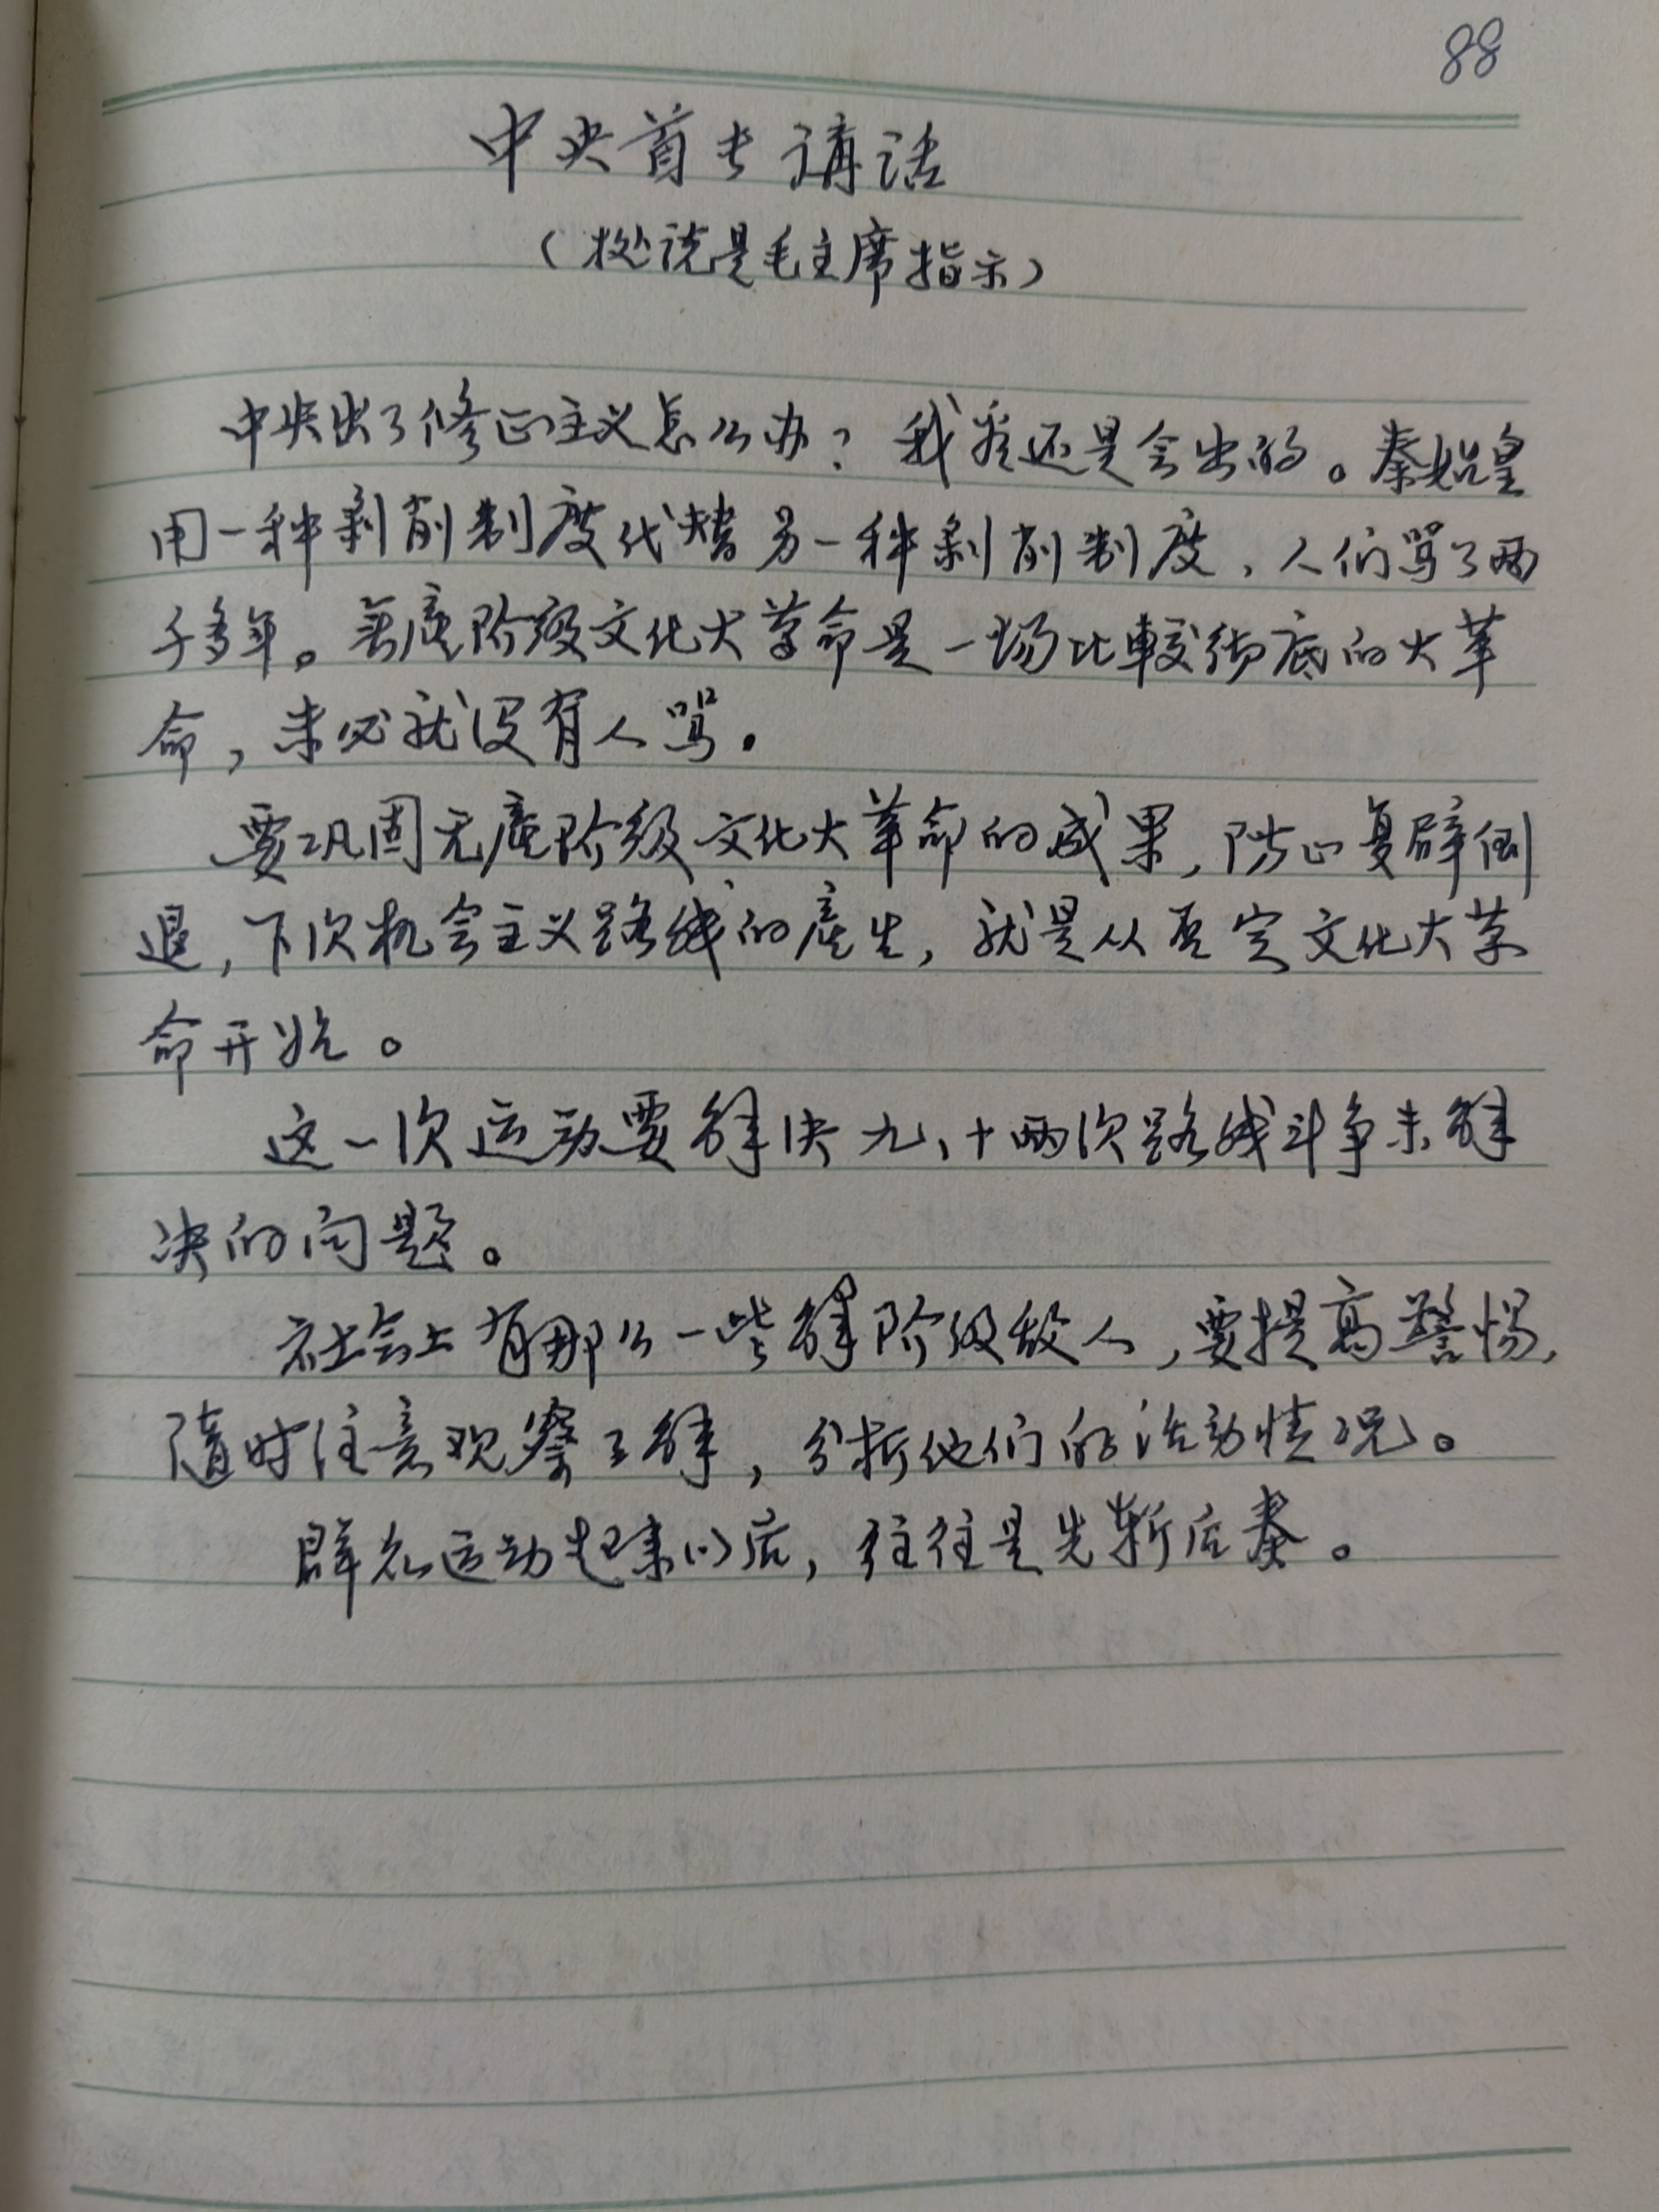 88
中央首长講话
（据说是毛主席指示）
中央出了修正主义怎么办？我看还是会出的。秦始皇
用一种剥削制度代替另一种剥削制度，人们骂了两
千多年。無産阶级文化大革命是一场比較彻底的大革
命，未必就没有人骂。
要巩固无産阶级文化大革命的成果，防止复辟倒
退，下次机会主义路线的産生，就是从否定文化大革
命开始。
这一次运动要解决九、十两次路线斗争未解
决的问题。
社会上有那么一些阶级敌人，要提高警惕，
随时注意观察了解，分析他们的活动情况。
群众运动起来以后，往往是先斩后奏。